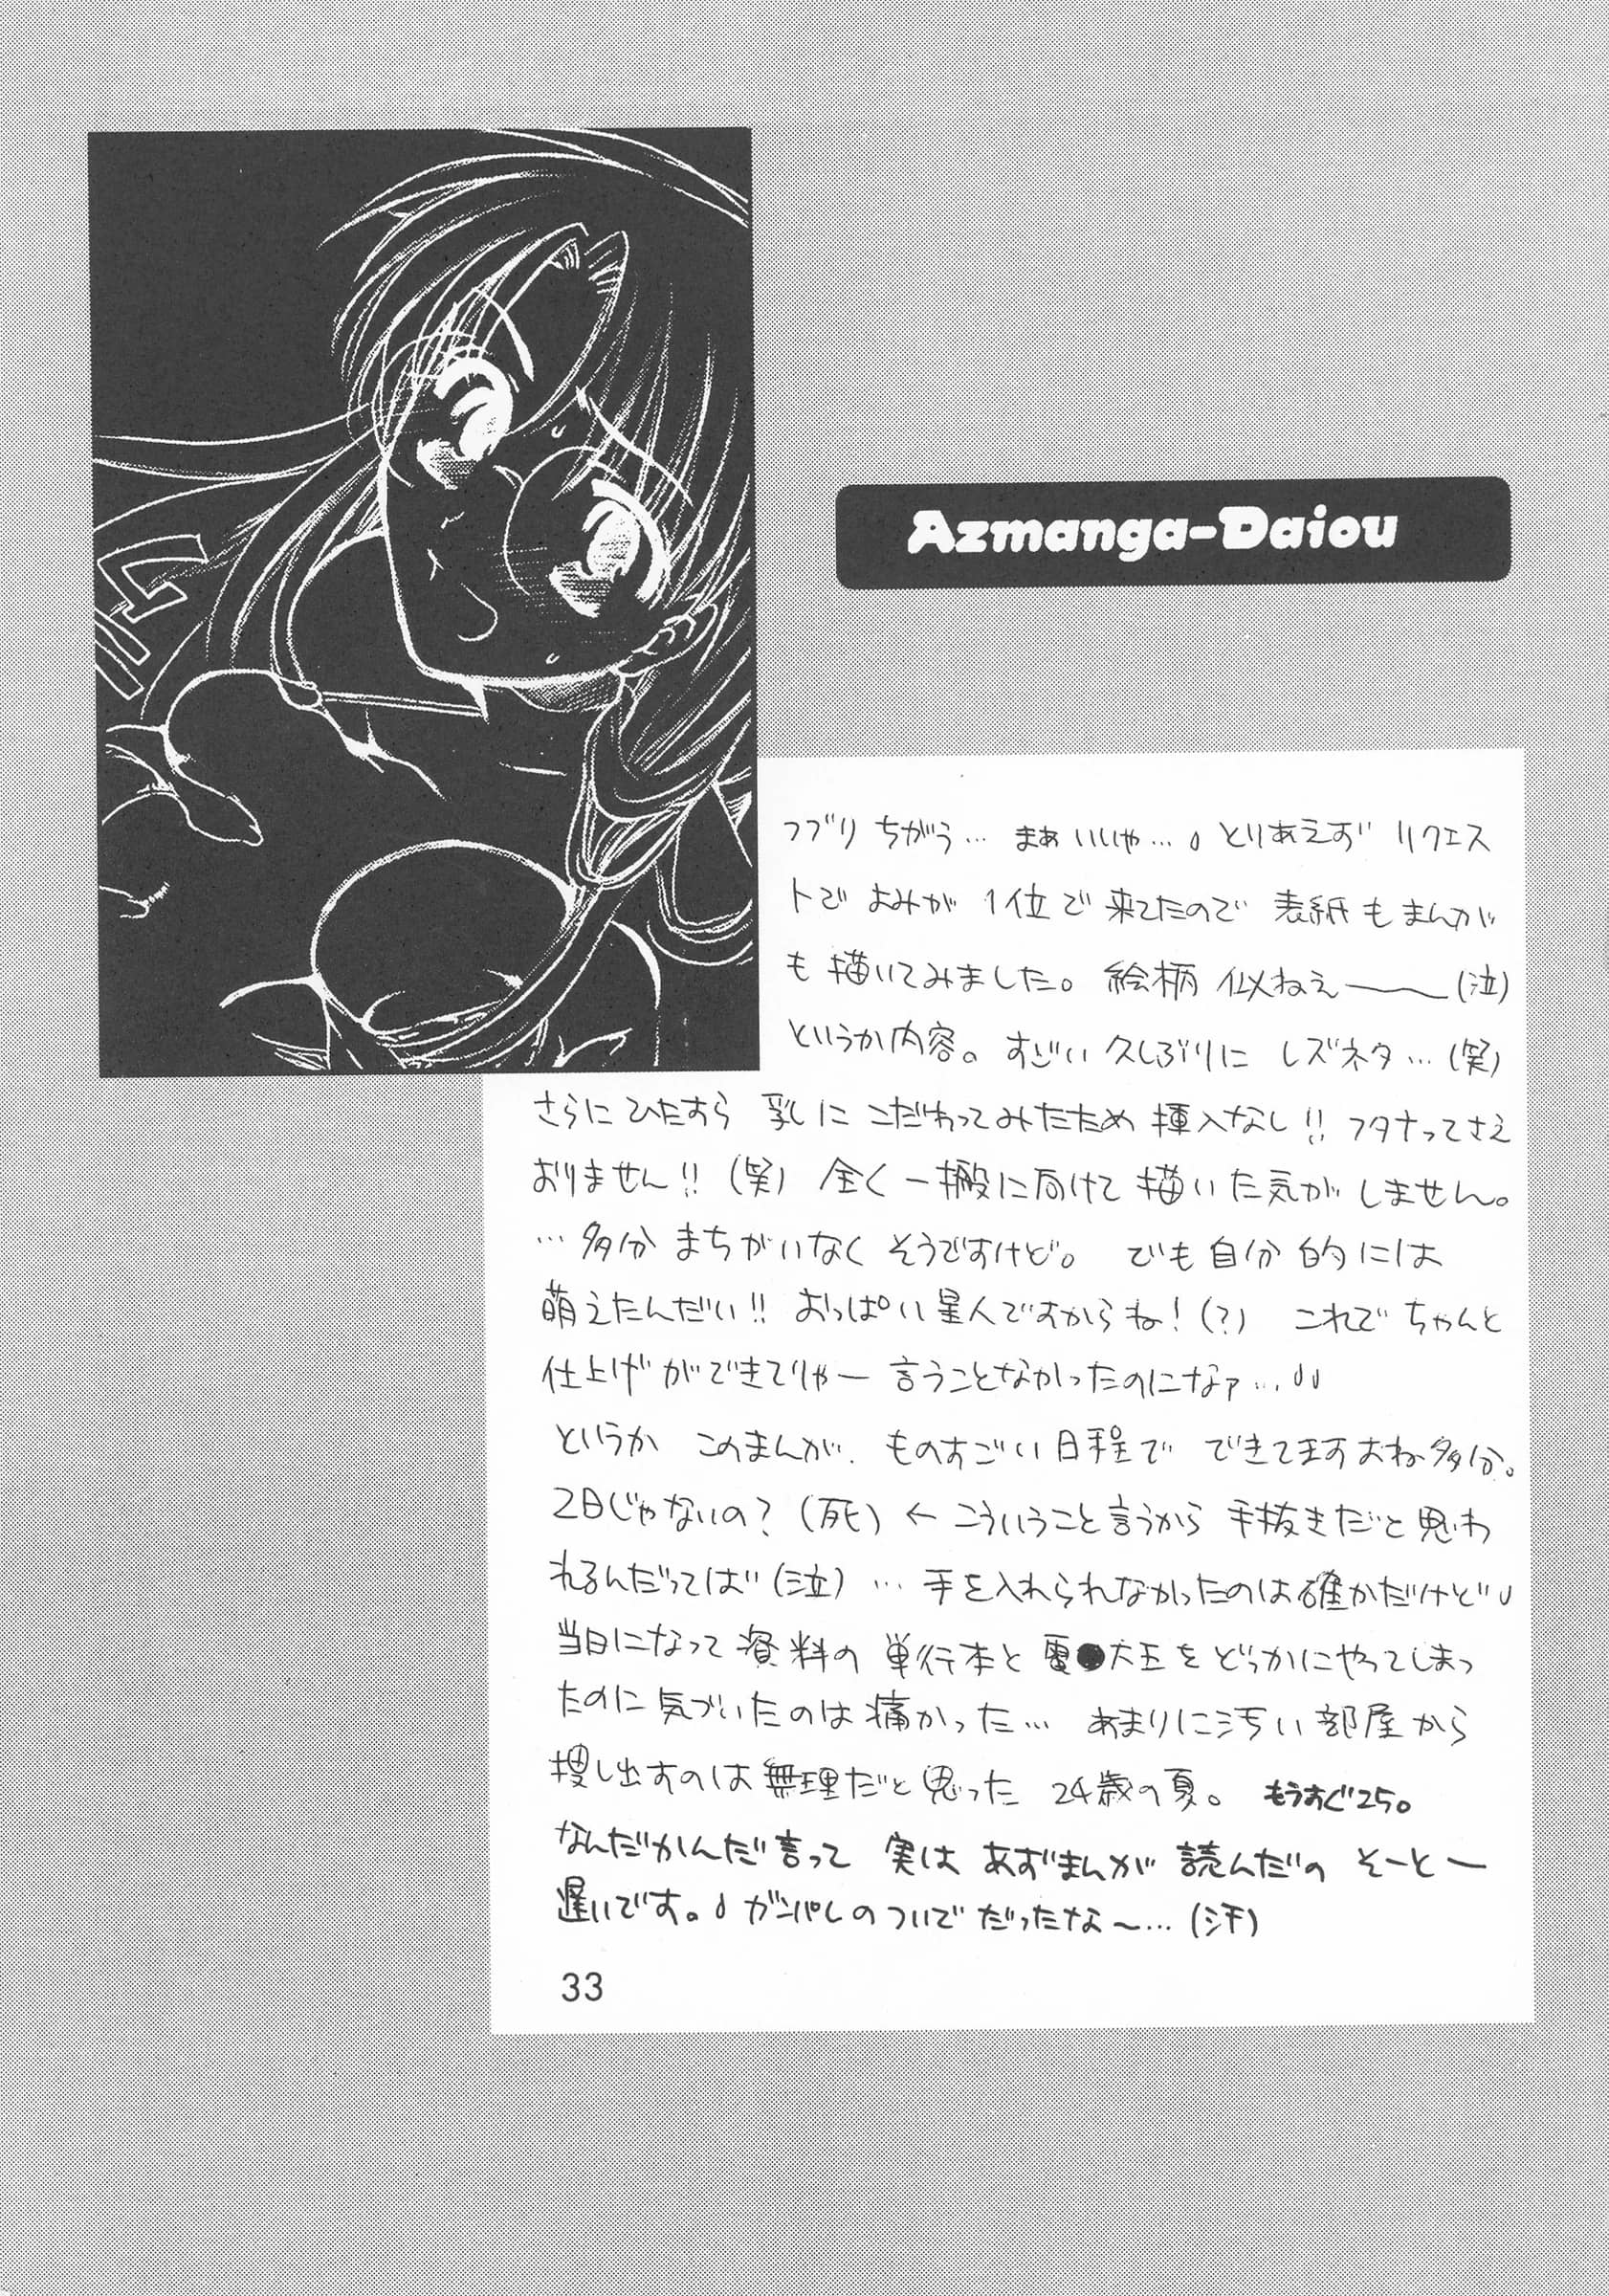 Azmanga-Daiou
つづり ちがう… まぁ いいや…。とりあえず リクエス
トで よみが 1位で来てたので 表紙もまんが
も描いてみました。絵柄 似ねえ――(泣)
というか内容。すごい久しぶりに レズネタ…(笑)
さらに ひたすら 乳に こだわってみたため 挿入なし!! フタナってさえ
おりません!!(笑) 全く一搬に向けて 描いた気がしません。
…多分 まちがいなく そうですけど。 でも自分的には
萌えたんだい!! おっぱい星人ですからね!(?) これで ちゃんと
仕上げができてりゃー 言うことなかったのになァ…
というか このまんが、ものすごい日程で できてますよね多分。
2日じゃないの?(死) ← こういうこと言うから 手抜きだと思わ
れるんだってば(泣) … 手を入れられなかったのは確かだけど
当日になって資料の 単行本と 電●大王をどっかにやってしまっ
たのに気づいたのは痛かった… あまりに汚い部屋から
捜し出すのは無理だと思った 24歳の夏。 もうすぐ25。
なんだかんだ言って 実は あずまんが 読んだの そーとー
遅いです。ガンパレの ついで だったな〜…(汗)
33